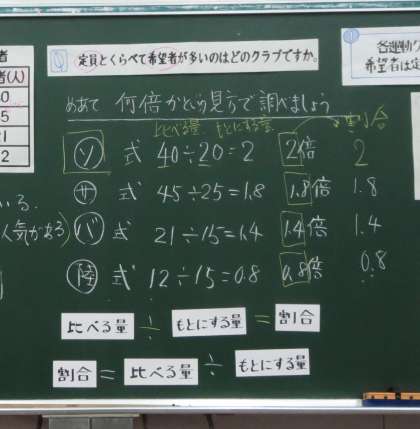 定員とくらべて希望者が多いのはどのクラブですか。
各運動ク
希望者は定
者
者(人)
0
5
21
2
めあて 何倍かという見方で調べましょう
比べる量 もとにする量 割合
ソ 式 40÷20=2 2倍 2
サ 式 45÷25=1.8 1.8倍 1.8
バ 式 21÷15=1.4 1.4倍 1.4
陸 式 12÷15=0.8 0.8倍 0.8
いる。
人気がある)
比べる量 ÷ もとにする量 = 割合
割合 = 比べる量 ÷ もとにする量